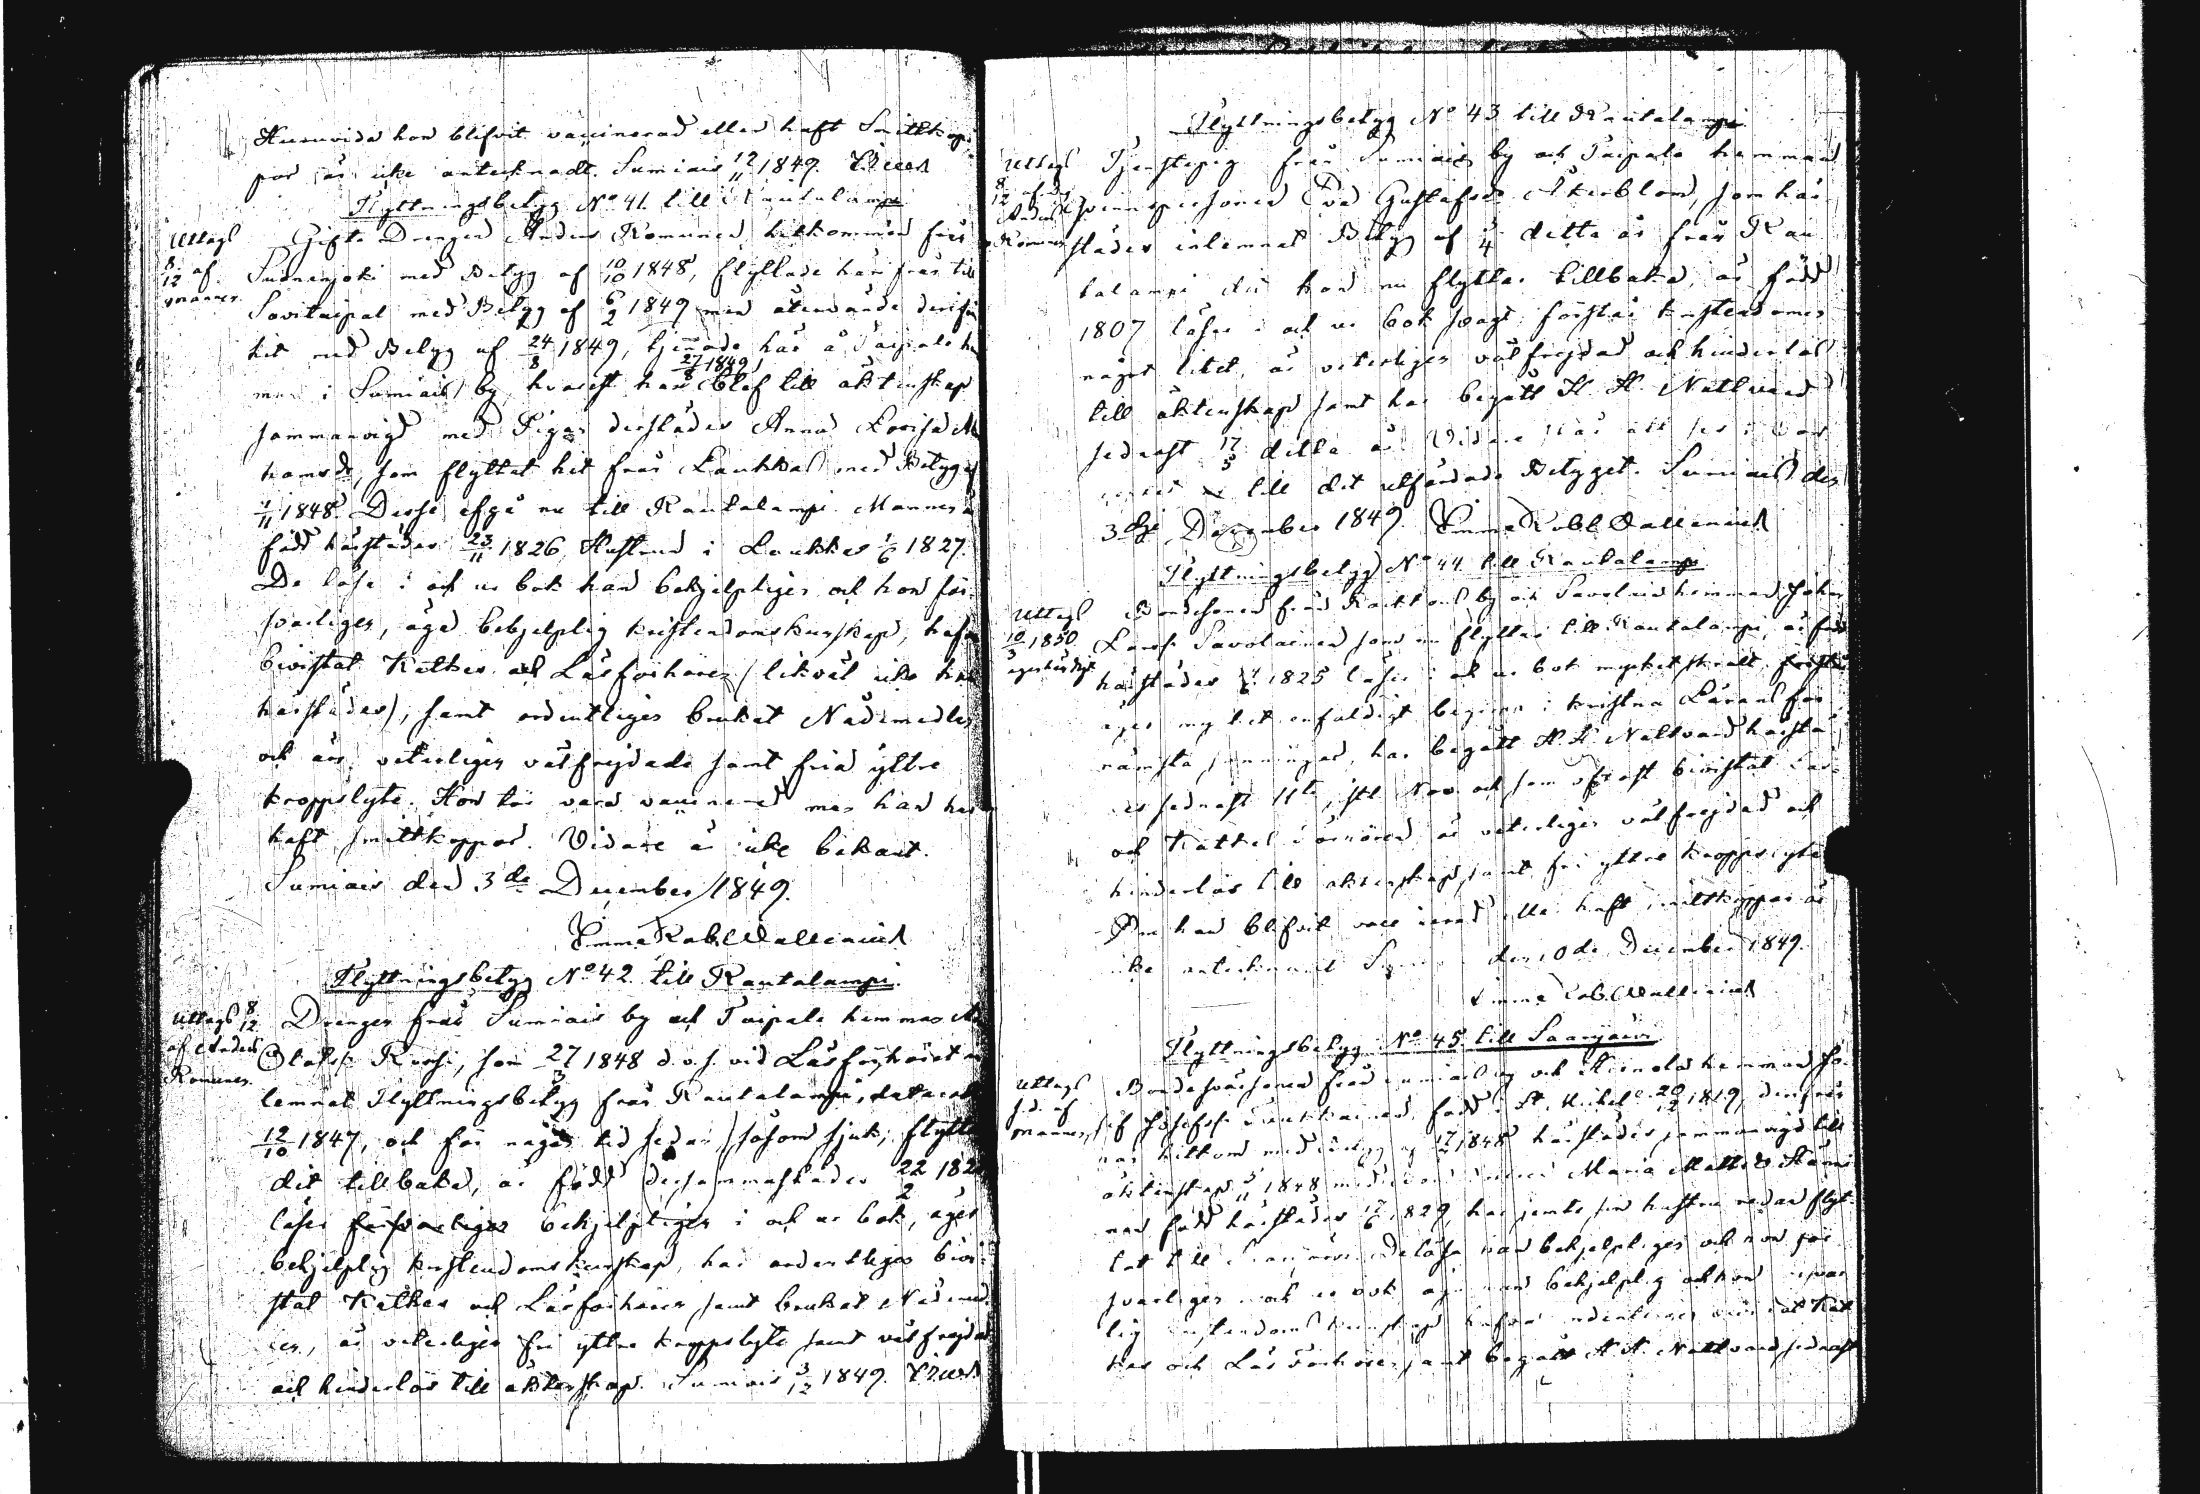 Huruvida hon blifvit vaccinerad eller haft Smittkop-
por är icke antecknadt. Sumiais 12/11 1849.
Flyttningsbetyg No 41. till Rautalampi
Uttagit
8/12 af
mannen
Gifte Drengen Anders Romunen hitkommen från
Suonenjoki med Betyg af 10/10 1848, flyttade härifrån till
Savitaipal med Betyg af 6/2 1849 men återvände derifrån
hit med Betyg af 24/8 1849, tjenade här å Taipale hem
man i Sumiais by, hvarest han 27/8 1849 blef till äktenskap
sammanvigd med Pigan derstädes Anna Lovisa
hansdr, som flyttat hit från Laukkas med Betyg af
1/11 1848. Desse afgå nu till Rautalampi. Mannen är
född härstädes 23/11 1826, Hustrun i Laukkas 1/6 1827.
De läsa i och ur bok han behjelpligen och hon för-
svarligen, äga behjelplig kristendomskunskap, hafva
bivistat Kätkes och Läsförhören (likväl icke han
härstädes), samt ordentligen brukat Nådemedlen
och äro veterligen välfrejdade samt fria yttre
kroppslyte. Hon tör vara vaccinerad men han har
haft smittkoppor. Vidare är icke bekant.
Sumiais den 3de December 1849.
Emma Rob. Wallenius
Flyttningsbetyg No 42. till Rautalampi.
Uttagit 8/12
af Anders
Romunen.
Drengen från Sumiais by och Taipale hemman
Olofss. Korhi, som 27/3 1848 d.v.s. vid Läsförhöret
lemnat Flyttningsbetyg från Rautalampi, dateradt
12/10 1847, och för någon tid sedan, såsom sjuk, flytt
dit tillbaka, är född dersammastädes 22/2 182
läser försvarligen behjelpligen i och ur bok, äger
behjelplig kristendomskunskap, har ordentligen bivi-
stat Kätkes och Läsförhören samt brukat Nådemed-
len, är veterligen fri yttre kroppslyte samt välfrejdad
och hinderlös till äktenskap. Sumiais 3/12 1849.
Flyttningsbetyg No 43 till Rautalampi
Uttagit
8/12 af
Anders
Romunen
Tjenstepig från Sumiais by och Taipale hemman
qvinnspersonen Eva Gustafsdr Åkerblom, som här
städes inlemnat Betyg af 4 detta år från Rau
talampi dit hon nu flyttar tillbaka, är född
1807 läser i och ur bok svagt, förstår kristendomen
något litet, är veterligen välfrejdad och hinderlös
till äktenskap samt har begått H. H. Nattvard
sednast 17/5 detta år. Vidare står att ses i
till det utfärdade Betyget. Sumiais den
3dje December 1849. Emma Rob. Wallenius
Flyttningsbetyg No 44 till Rautalampi
Uttagit
10/3 1850
egenhändigt
Bondesonen från by och Savolais hemman Johan
Larss. Savolainen som nu flyttar till Rautalampi, är född
härstädes 1825 läser i och ur bok mycket svalt,
eger mycket enfaldigt begrepp i kristna Läran för-
nämsta sanningar, har begått H. H. Nattvard härstä
des sednast 11te Nov och som oftast bivistat Läs-
och Kätkes förhören, är veterligen välfrejdad och
hinderlös till äktenskap samt fri yttre kroppslyte
Om han blifvit vaccinerad eller haft smittkoppor är
icke antecknadt Sumiais den 10de December 1849.
Emma Rob. Wallenius
Flyttningsbetyg No 45 till Saarijärvi
Uttagit
s.d. af
mannen
Bondesvåren från Sumiais by och hemman Jo-
sef Josefss. född i St. Michel 20/12 1819, derifrån
han hitkom med Betyg af 17 1848 härstädes sammanvigd till
äktenskap 11 1848 med Maria Mattsdr
nen född härstädes 17/6 1829, har jemte sin hustru redan flyt-
tat till Saarijärvi. De läsa han behjelpligen och hon för
svarligen i och ur bok äga han behjelplig och hon försvar
lig kristendoms kunskap hafva ordentligen bivistat Kät
kes och Läsförhören samt begått H. H. Nattvard sednast